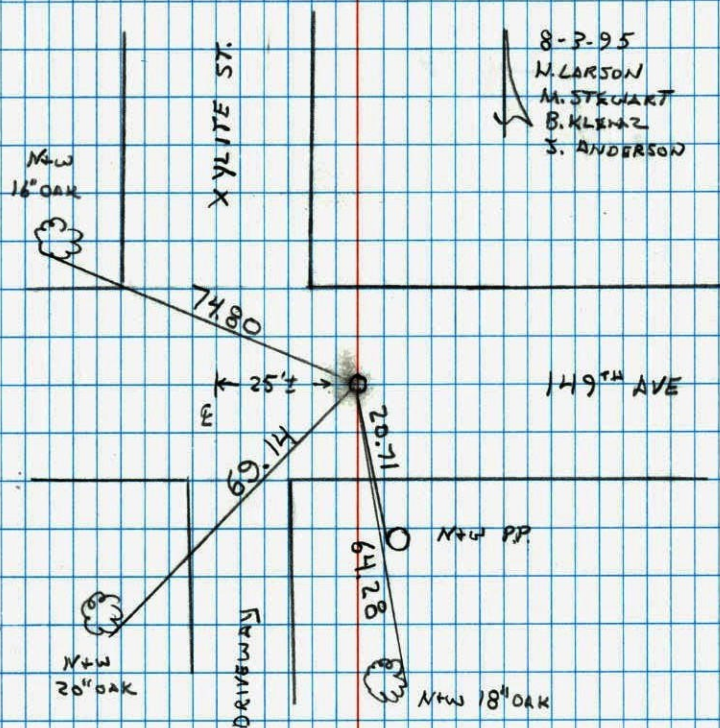 8-3-95
N. LARSON
M. STEWART
B. KLENZ
S. ANDERSON
XYLITE ST.
N+W
16" OAK
74.80
25'±
℄
149TH AVE
20.71
69.14
N+W P.P.
64.28
N+W
20" OAK
DRIVEWAY
N+W 18" OAK